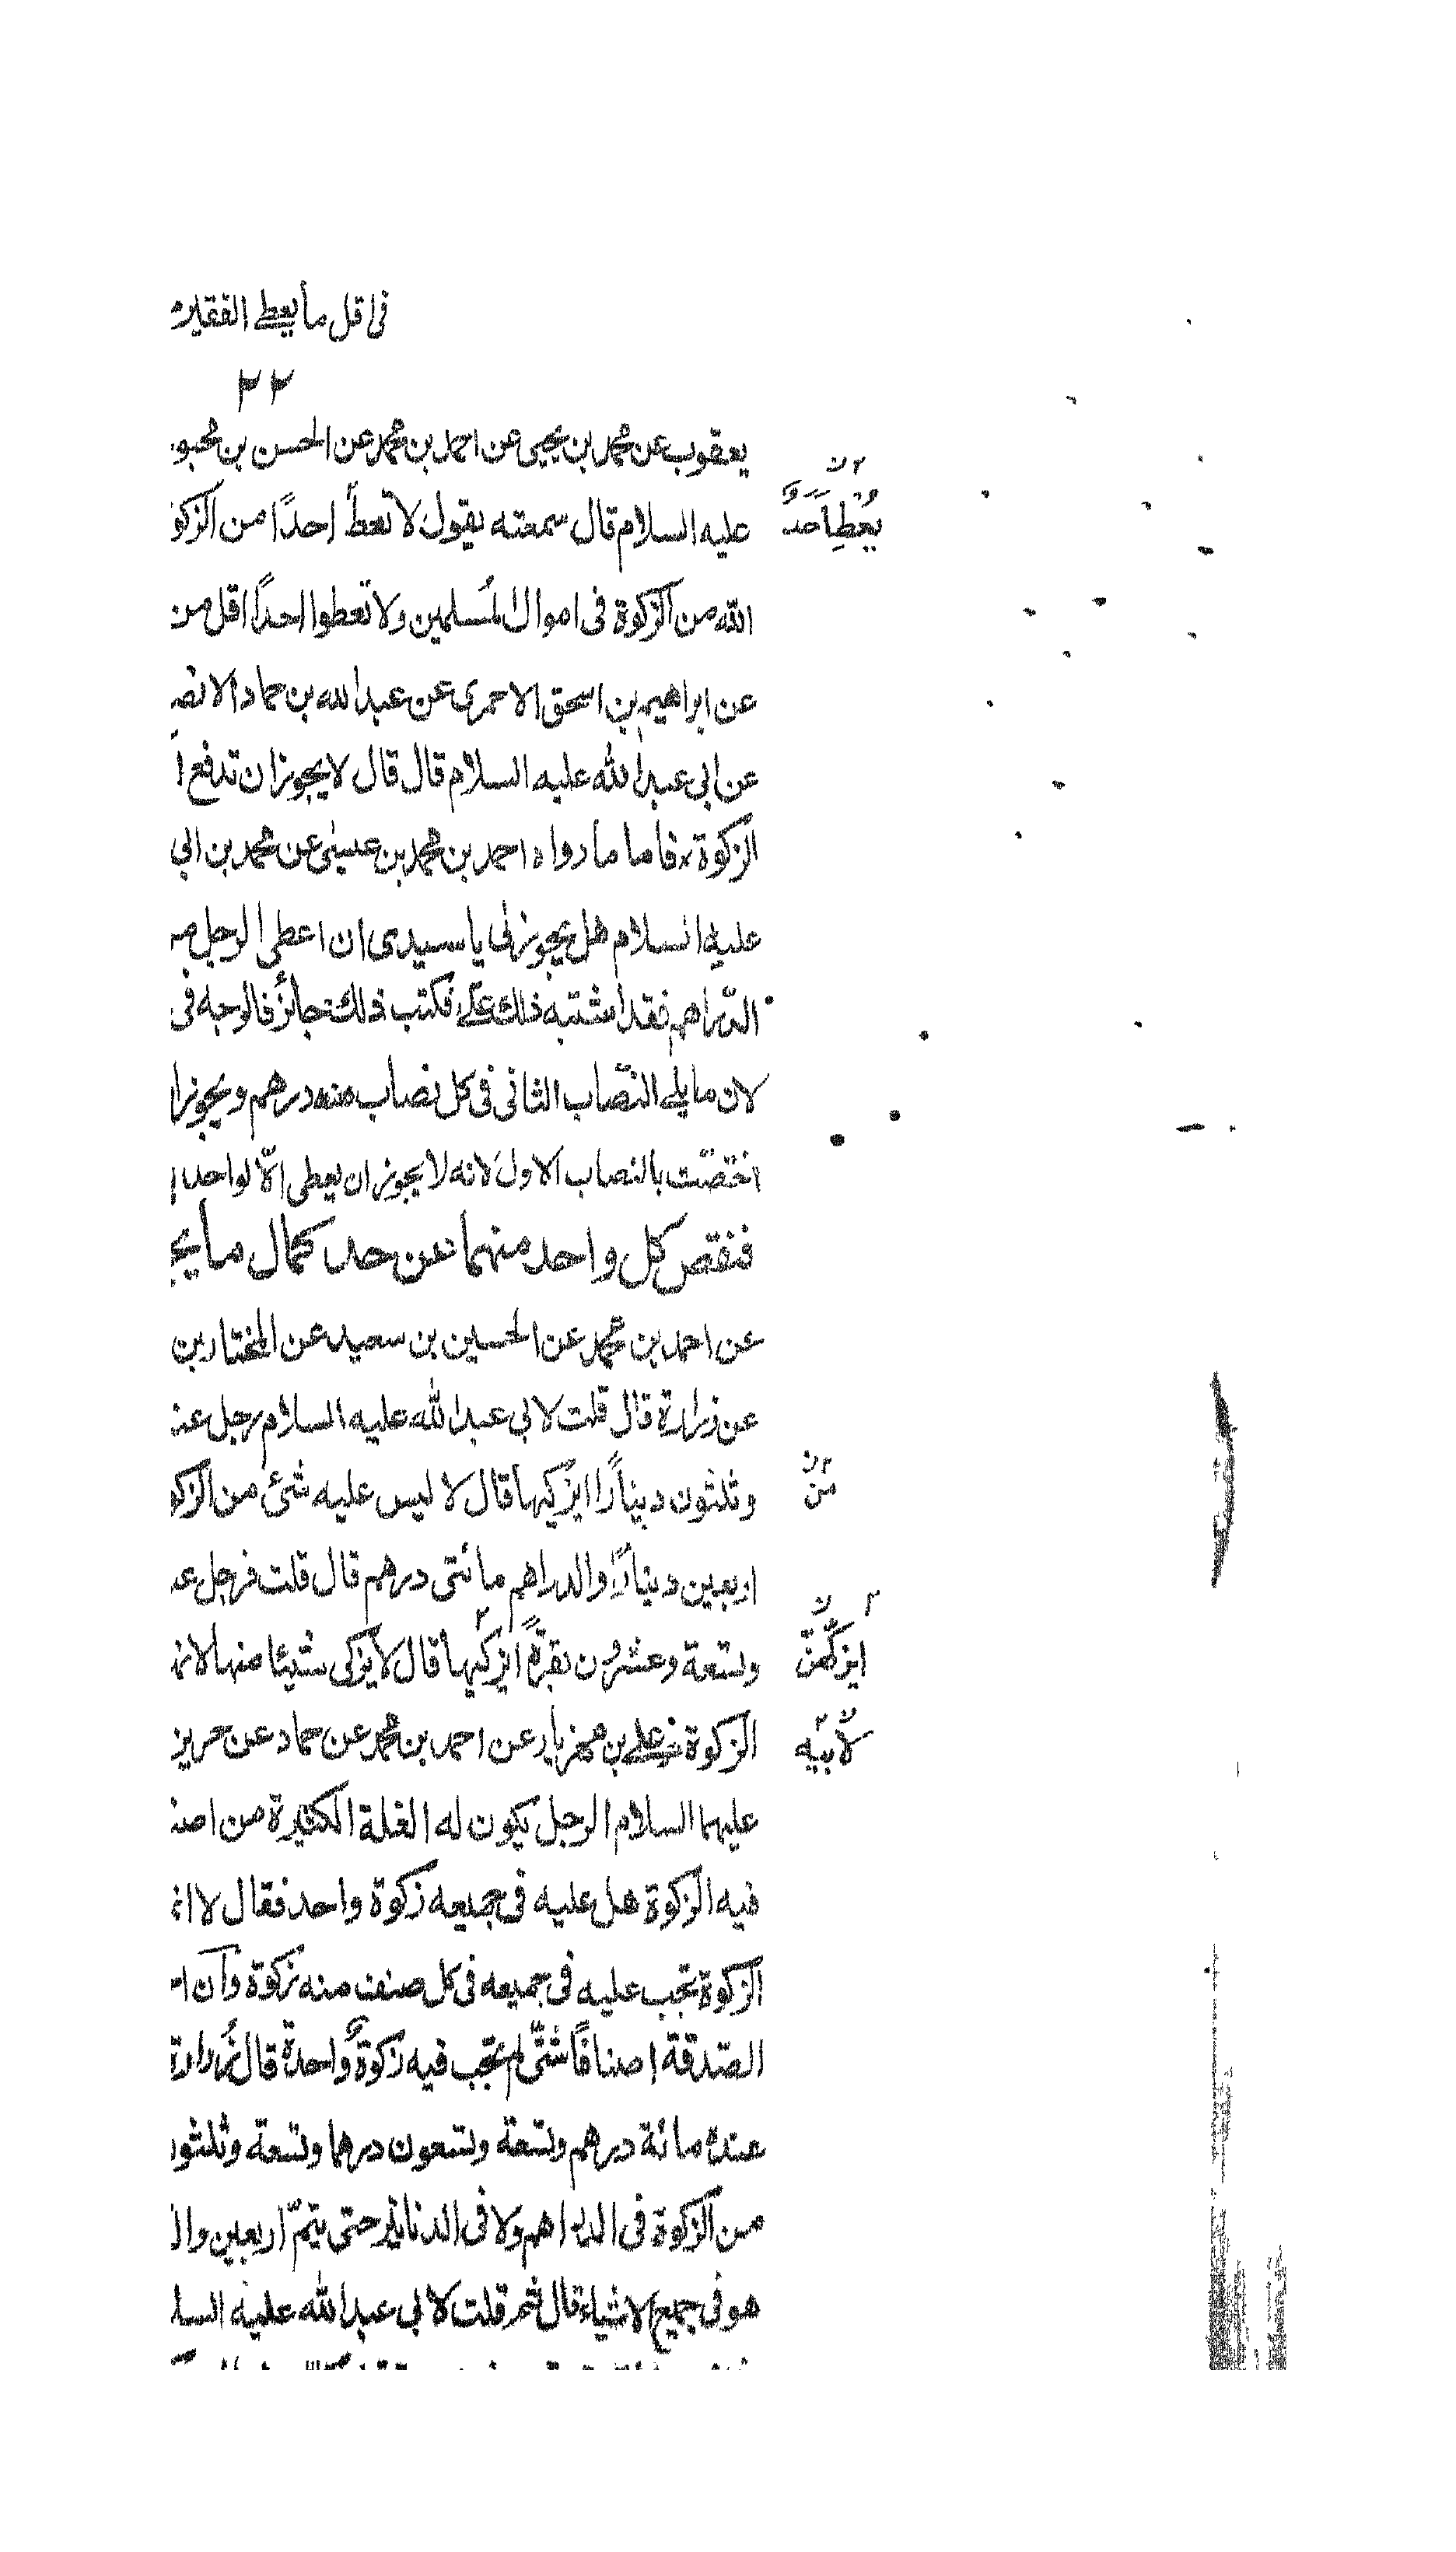 في اقل ما يعطى الفقير
٢٢
يعقوب عن محمد بن يحيى عن احمد بن محمد عن الحسن بن محبو
٢ ن
يعط احد
عليه السلام قال سمعته يقول لا تعط احدًا من الزكو
الله من الزكوة في اموال المسلمين ولا تعطوا احدًا اقل من
عن ابراهيم بن اسحق الاحمرى عن عبد الله بن حماد الانص
عن ابي عبد الله عليه السلام قال قال لا يجوز ان تدفع ا
الزكوة فاما ما رواه احمد بن محمد بن عيسى عن محمد بن ابي
عليه السلام هل يجوز لي يا سيدى ان اعطى الرجل
الدراهم فقد اشتبه ذلك على فكتب ذلك جائز فالوجه في
لان ما يلى النصاب الثاني في كل نصاب منه درهم ويجوز ا
اختصّت بالنصاب الاول لانه لا يجوز ان يعطى الّا لواحد
فنقص كل واحد منهما عن حد كمال ما يج
عن احمد بن محمد عن الحسين بن سعيد عن المختار بن
عن زرارة قال قلت لابي عبد الله عليه السلام رجل عن
٢ ن
من
وثلثون دينارًا ايزكيها قال لا ليس عليه شئ من الزكو
اربعين دينارًا والدراهم مائتى درهم قال قلت فرجل ع
٢ ن
ايزكهن
وتسعة وعشرون بقرةً ايزكيها قال لا يزكى شيئا منها لانه
٢ ن
لابيه
الزكوة على بن مهزيار عن احمد بن محمد عن حماد عن حريز
عليهما السلام الرجل يكون له الغلة الكثيرة من اص
فيه الزكوة هل عليه في جميعه زكوة واحد فقال لا
الزكوة تجب عليه في جميعه في كل صنف منه زكوة وان
الصدقة اصنافًا شتّى لم تجب فيه زكوة واحدة قال زرارة
عنده مائة درهم وتسعة وتسعون درهما وتسعة وثلثون
من الزكوة في الدراهم ولا في الدنانير حتى يتمّ اربعين وال
هو في جميع الاشياء قال ثم قلت لابي عبد الله عليه السل